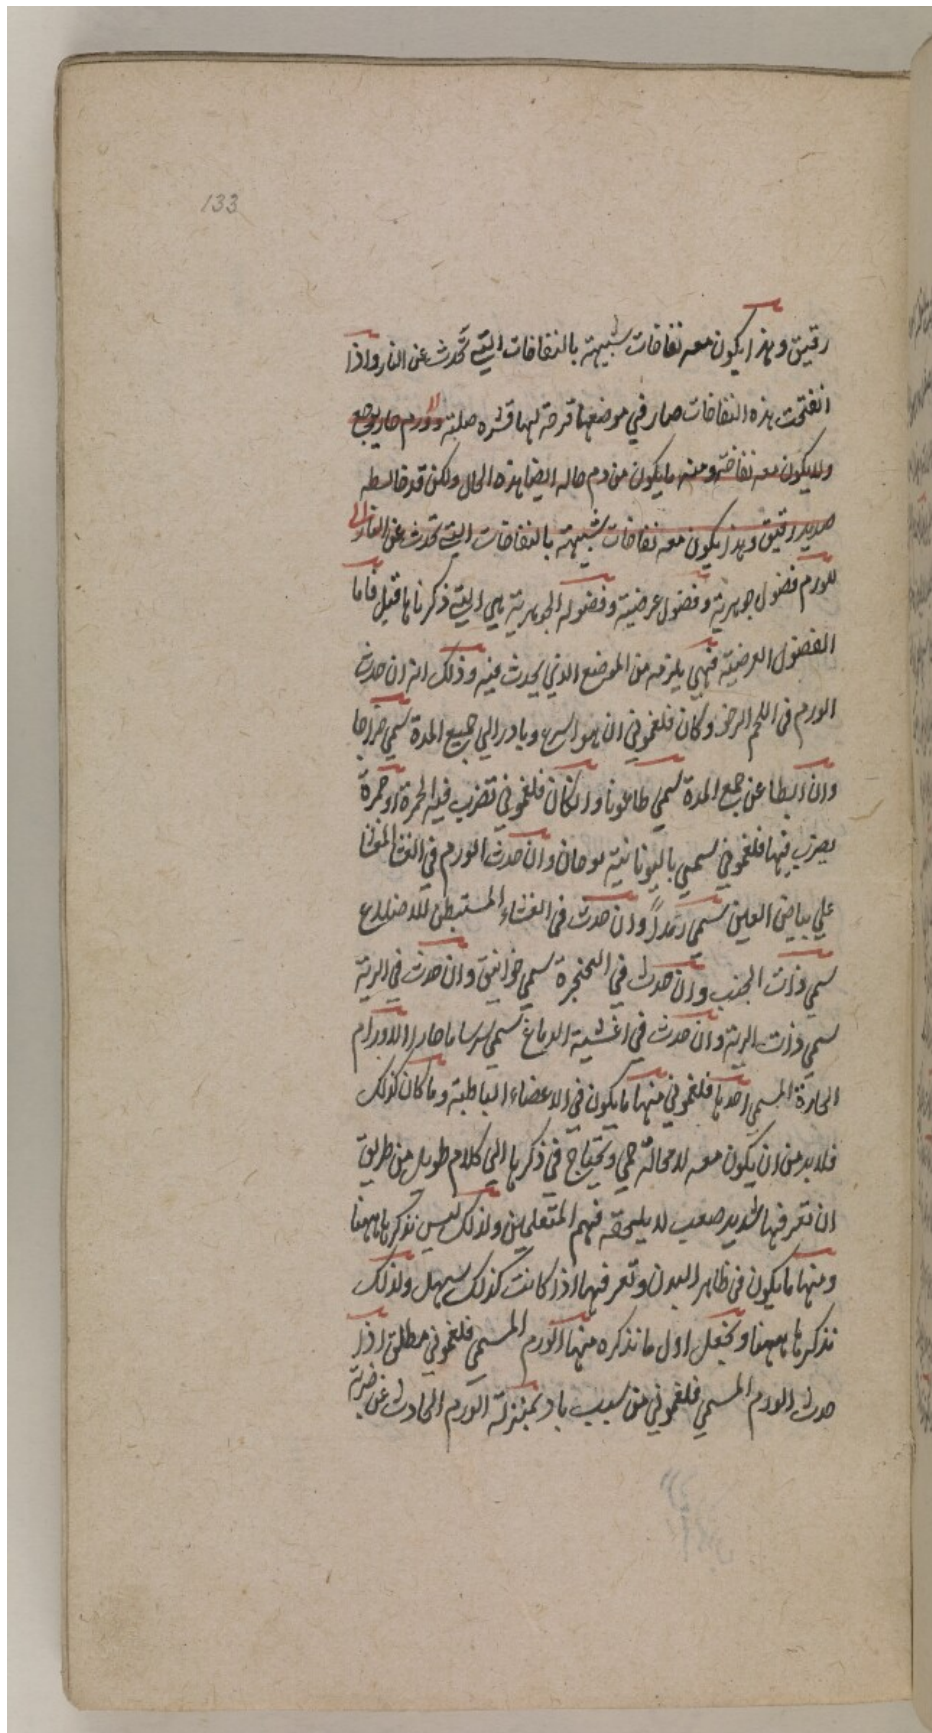 133
رقيق وهذا يكون معه نفاخات شبيهة بالنفاخات التي تحدث عن النار واذا
انفتحت هذه النفاخات صار في موضعها قرحة لها قشره صلبة وورم حار يوجع
ولا يكون معه نفاخة ومنه ما يكون من دم حاله ايضا هذه الحال ولكن قد خالطه
صديد رقيق وهذا يكون معه نفاخات شبيهة بالنفاخات التي تحدث عن النار
للورم فضول جوهرية وفضول عرضية وفضوله الجوهرية هي التي ذكرناها قبل فاما
الفضول العرضية فهي يلزمه من الموضع الذي يحدث فيه وذلك انه ان حدث
الورم في اللحم الرخو وكان فلغموني ان هو اسرع وبادر الي جميع المدة سمي خراجا
وان ابطا عن جمع المدة سمي طاعونا وان كان فلغموني تضرب فيه الحمرة او حمرة
يضرب فيها فلغموني سمي باليونانية وان حدث الورم في الغشا
علي بياض العين سمي رمدا وان حدث في الغشاء المستبطن للاضلاع
سمي ذات الجنب وان حدث في الحنجرة سمي خوانيق وان حدث في الرية
سمي ذات الرية وان حدث في اغشية الدماغ سمي سرساما حارا الاورام
الحارة المسمي احدها فلغموني منها ما يكون في الاعضاء الباطنة وما كان كذلك
فلا بد من ان يكون معه لا محالة حمي ويحتاج في ذكرها الي كلام طويل من طريق
ان تعرفها شديد صعب لا يلحقه فهم المتعلمين ولذلك ليس نذكرها ههنا
ومنها ما يكون في ظاهر البدن وتعرفها اذا كانت كذلك سهل ولذلك
نذكرها ههنا ونجعل اول ما نذكره منها الورم المسمي فلغموني مطلق اذا
حدث الورم المسمي فلغموني من سبب باد بمنزلة الورم الحادث عن ضربة